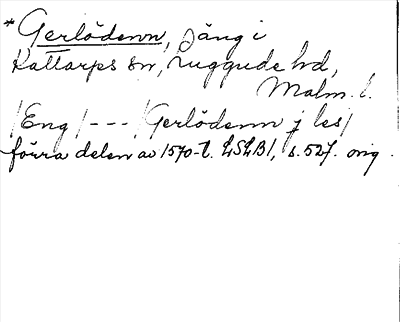 * Gerlödenn, äng i
Kattarps sn, Luggude hd,
Malm. l.
/Eng/ --- /Gerlödenn j les/
förra delen av 1570-t. LSLB1, s. 527. orig.